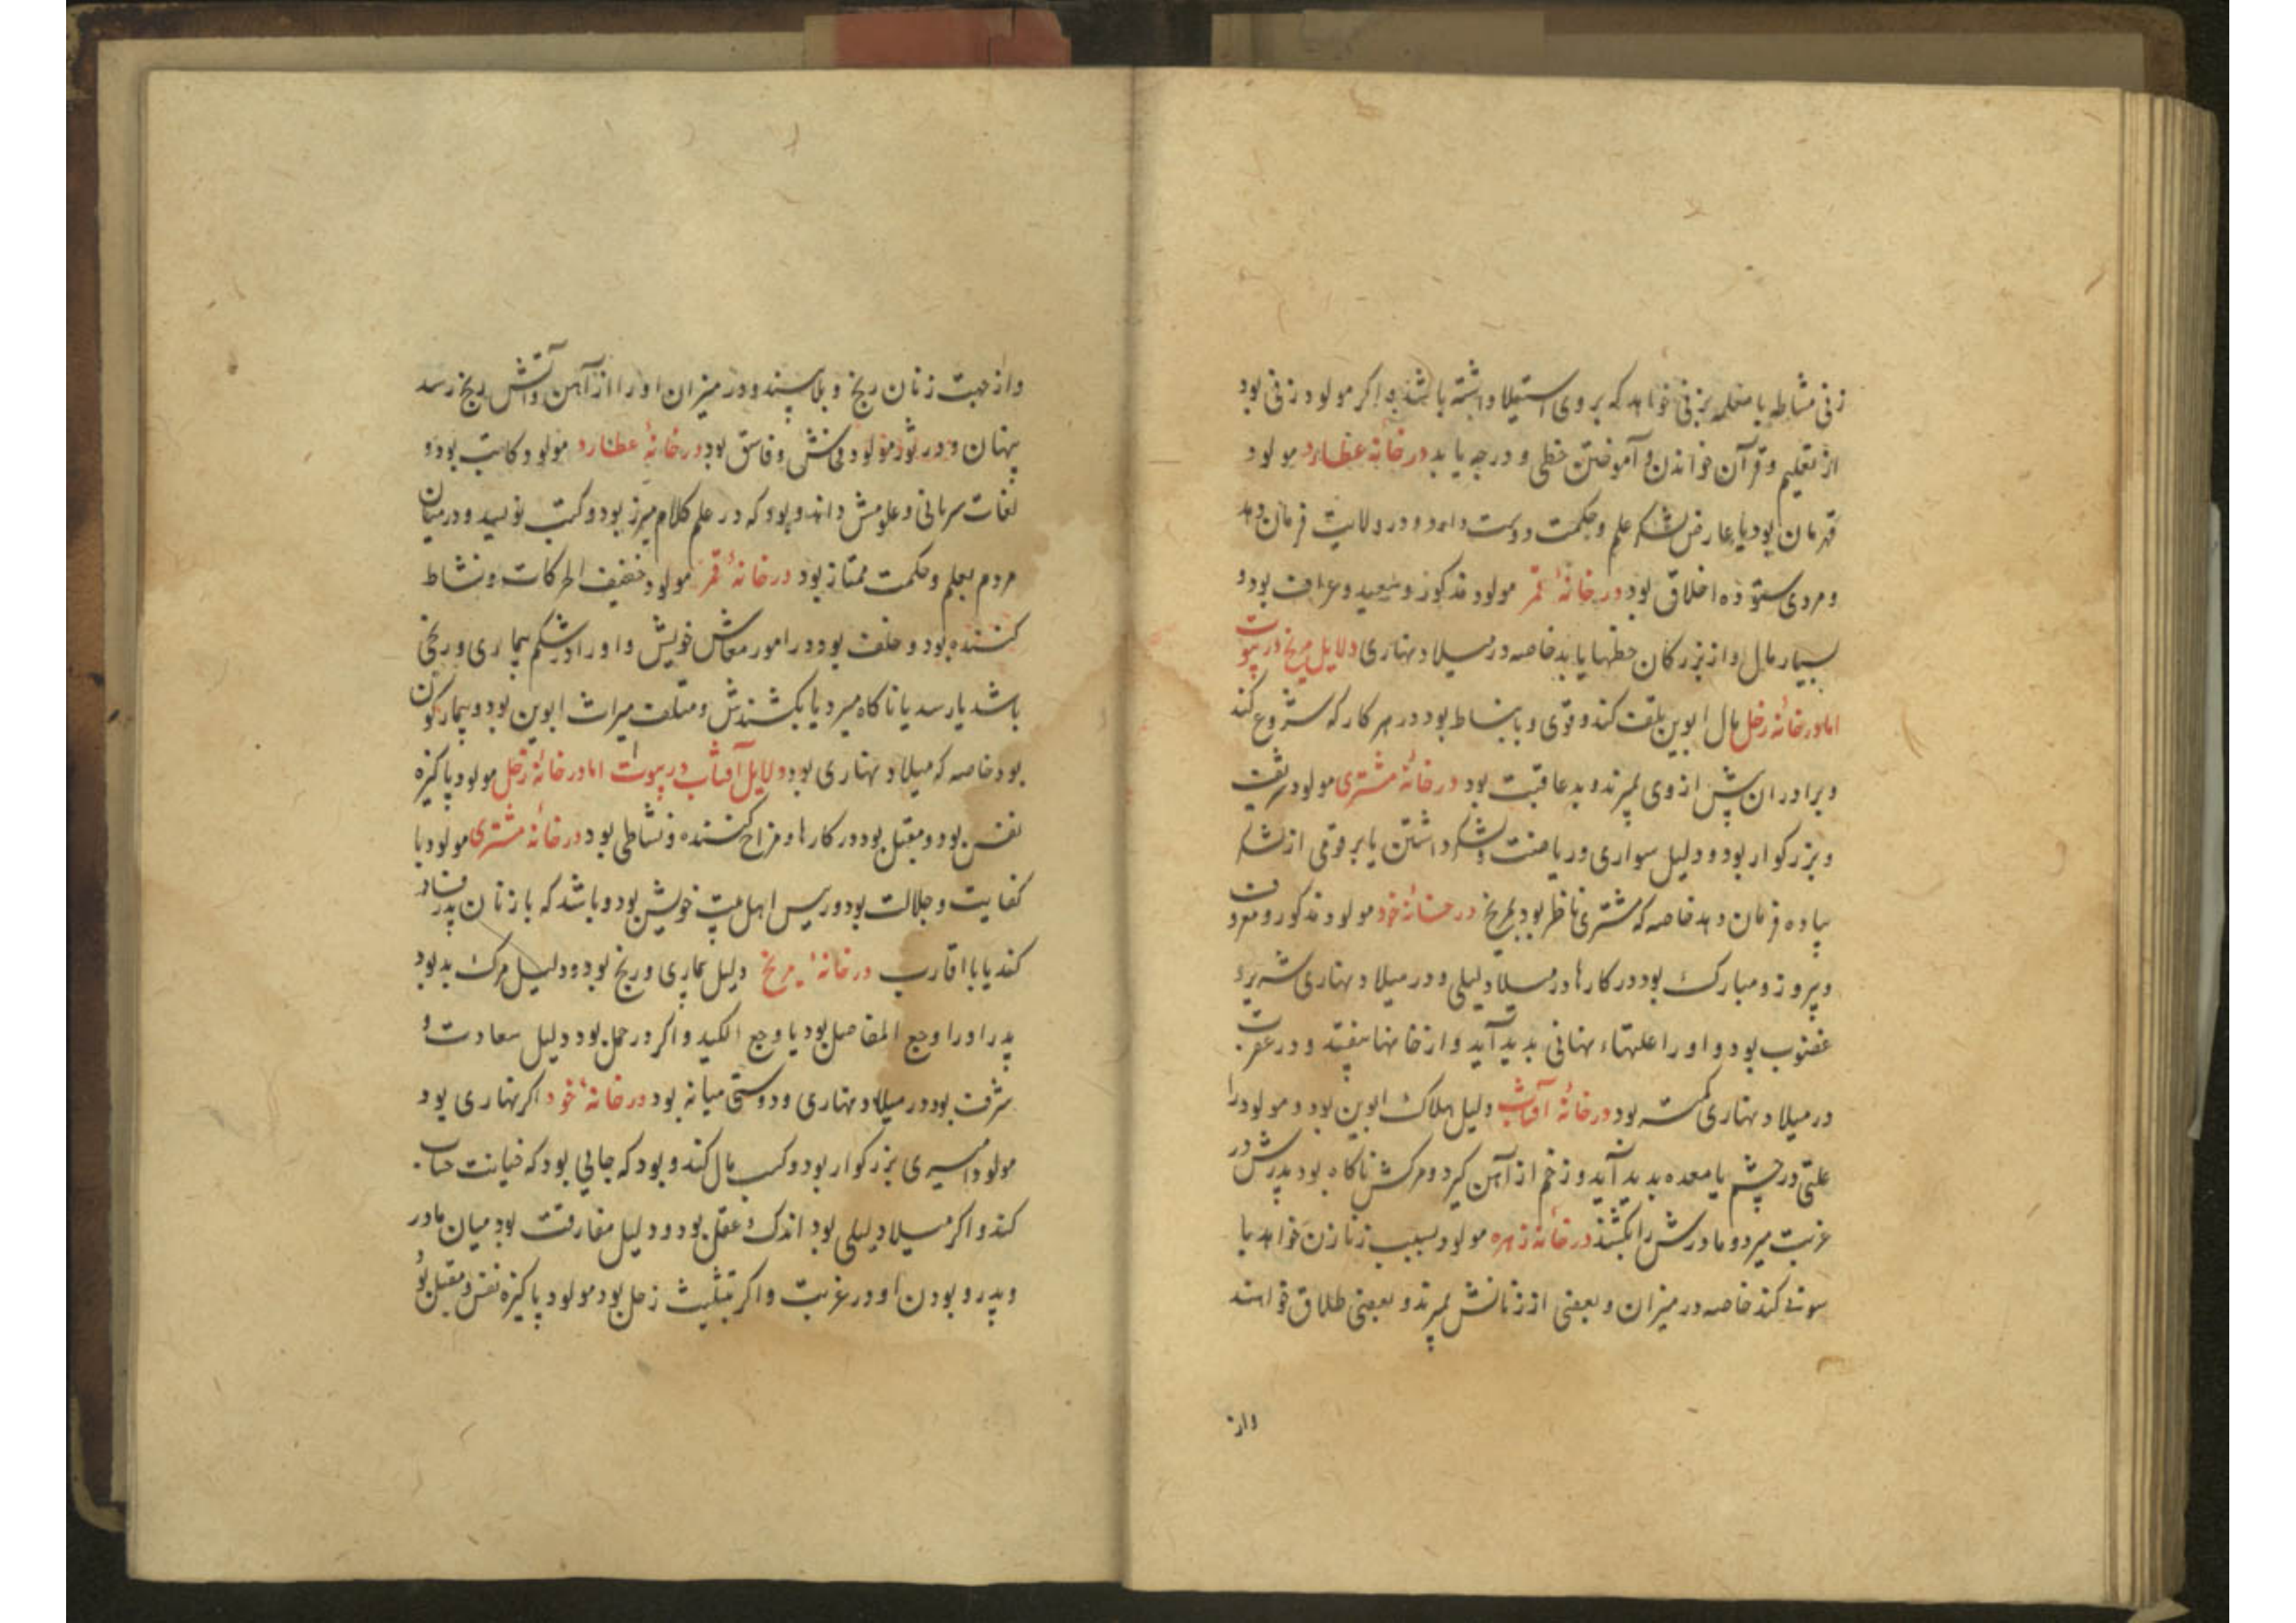 زنی مشاطه یا معلمه بزنی خواهد که بر وی استیلا داشته باشد و اگر مولود زنی بود
از تعلیم و قرآن خواندن و آموختن حظی و درجه یابد در خانهٔ عطارد مولود
قهرمان بود یا عارض لشکر علم و حکمت دوست دارد و در ولایت فرمان دهد
و مردی ستوده اخلاق بود در خانهٔ قمر مولود مذکور و سعید و عراف بود و
بسیار مال و از بزرکان حظها یابد خاصه در میلاد نهاری دلایل مریخ در بیوت
اما در خانهٔ زحل مال ابوین تلف کند و قوی و با نشاط بود در هر کار که شروع کند
و برادران پیش از وی بمیرند و بد عاقبت بود در خانهٔ مشتری مولود شریف
و بزرکوار بود و دلیل سواری و ریاضت و لشکر داشتن یا بر قومی از لشکر
پیاده فرمان دهد خاصه که مشتری ناظر بود بمریخ در خانهٔ خود مولود مذکور و معروف
و پیروز و مبارک بود در کارها در میلاد لیلی و در میلاد نهاری شریر و
غضوب بود و او را علتهاء نهانی پدید آید و از خانها بیفتد و در عقرب
در میلاد نهاری کمتر بود در خانهٔ آفتاب دلیل هلاک ابوین بود و مولود را
علتی در چشم یا معده پدید آید و زخم از آهن گیرد و مرکش ناکاه بود پدرش در
غربت میرد و مادرش را بکشند در خانهٔ زهره مولود بسبب زنا زن خواهد یا
کند خاصه در میزان و بعضی از زنانش بمیرند و بعضی طلاق خواهند
واز
واز جهت زنان رنج و بلا بیند و در میزان او را از آهن و آتش رنج رسد
پنهان و در ثور مولود فحش و فاسق بود در خانهٔ عطارد مولود کاتب بود و
لغات سریانی و علومش داند و بود که در علم کلام مبرز بود و کتب نویسد و در میان
مردم بعلم و حکمت ممتاز بود در خانهٔ قمر مولود خفیف الحرکات و نشاط
کننده بود و خلف بود در امور معاش خویش و او را در شکم بیماری و رنجی
باشد یا رسد یا ناکاه میرد یا بکشندش و متلف میراث ابوین بود و بیمارکون
بود خاصه که میلاد نهاری بود دلایل آفتاب در بیوت اما در خانهٔ زحل مولود پاکیزه
نفس بود و مقبل بود در کارها و مزاح کننده و نشاطی بود در خانهٔ مشتری مولود با
کفایت و جلالت بود و رییس اهل بیت خویش بود و باشد که با زنان پدر فساد
کند یا با اقارب در خانهٔ مریخ دلیل بیماری و رنج بود و دلیل مرک بد بود
پدر او را وجع المفاصل بود یا وجع الکبد و اکر در حمل بود دلیل سعادت و
شرف بود در میلاد نهاری و دوستی میانه بود در خانهٔ خود اکر نهاری بود
مولود امیری بزرکوار بود و کسب مال کند و بود که جایی بود که خیانت حساب
کند و اکر میلاد لیلی بود اندک عقل بود و دلیل مفارقت بود میان مادر
و پدر و بودن او در غربت و اکر بتثلیث زحل بود مولود پاکیزه نفس و مقبل بود